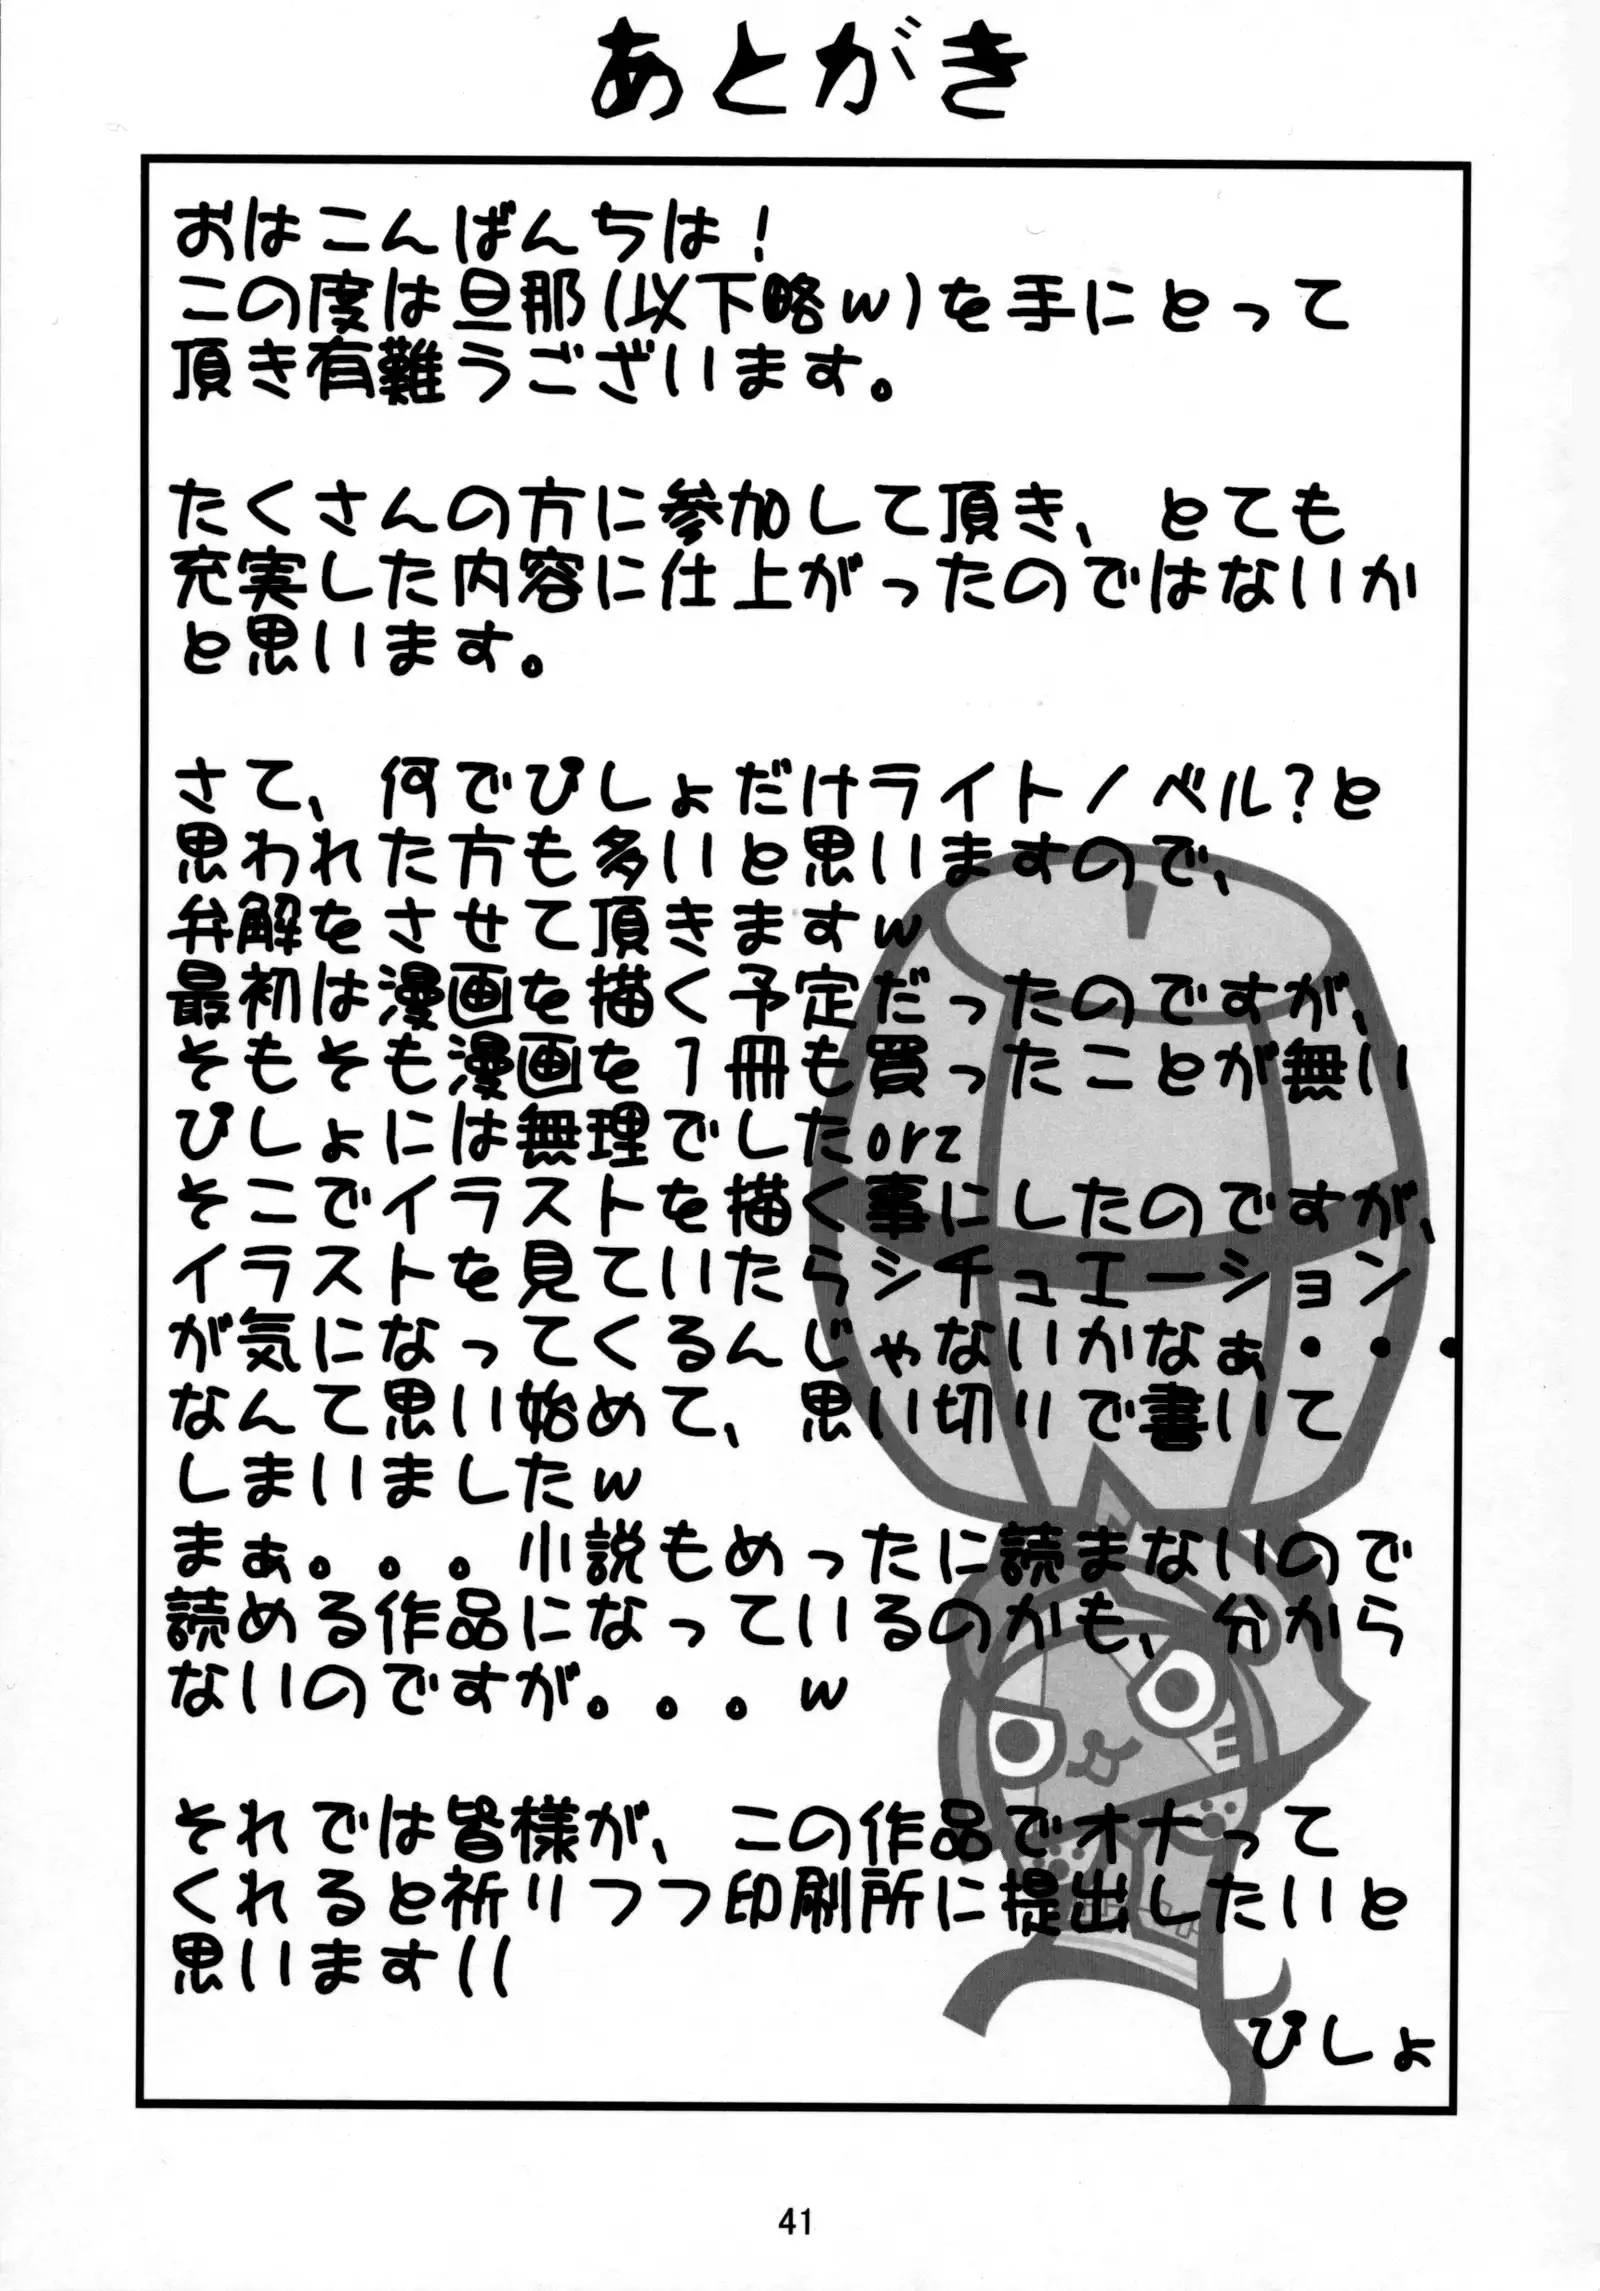 あとがき
おはこんばんちは！
この度は旦那(以下略w)を手にとって
頂き有難うございます。
たくさんの方に参加して頂き、とても
充実した内容に仕上がったのではないか
と思います。
さて、何でぴしょだけライトノベル?と
思われた方も多いと思いますので、
弁解をさせて頂きますw
最初は漫画を描く予定だったのですが、
そもそも漫画を1冊も買ったことが無い
ぴしょには無理でしたorz
そこでイラストを描く事にしたのですが、
イラストを見ていたらシチュエーション
が気になってくるんじゃないかなぁ・・・
なんて思い始めて、思い切りで書いて
しまいましたw
まぁ。。。小説もめったに読まないので
読める作品になっているのかも、分から
ないのですが。。。w
それでは皆様が、この作品でオナって
くれると祈りつつ印刷所に提出したいと
思います((
ぴしょ
41